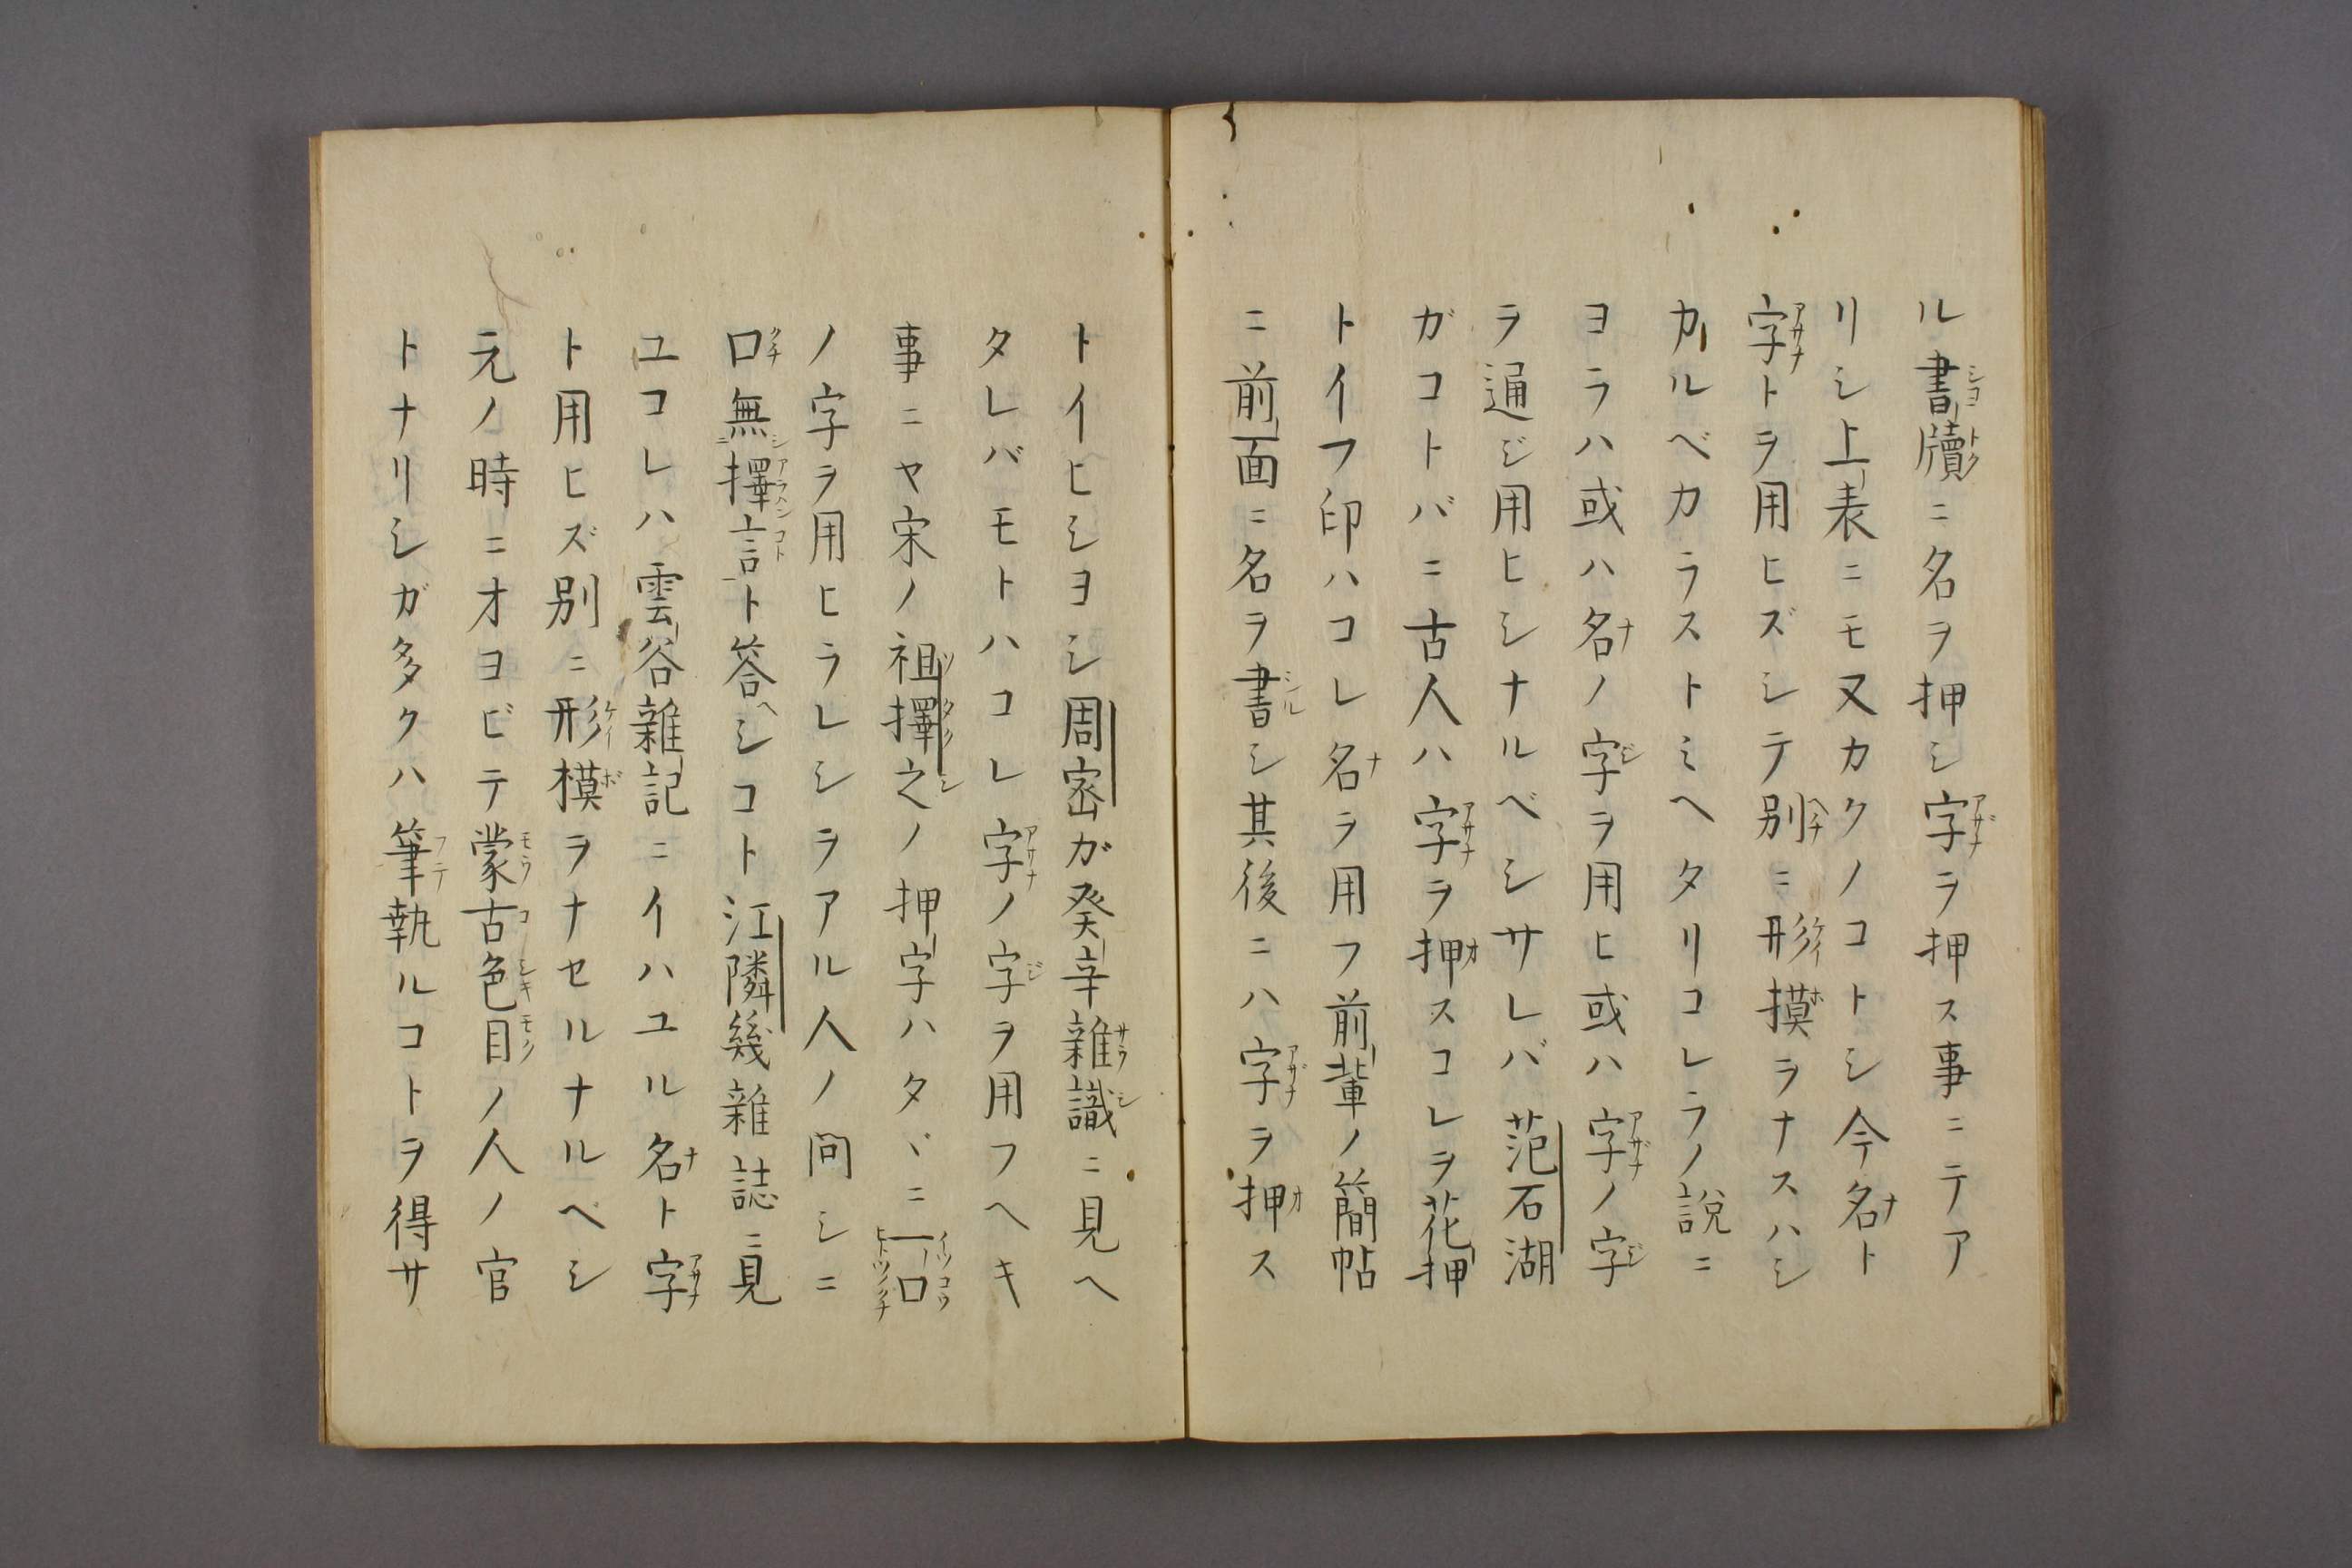 ル書牘ニ名ヲ押シ字ヲ押ス事ニテア
リシ上表ニモ又カクノコトシ今名ト
字トヲ用ヒズシテ別ニ形摸ヲナスハシ
カルベカラストミヘタリコレラノ説ニ
ヨラハ或ハ名ノ字ヲ用ヒ或ハ字ノ字
ヲ通ジ用ヒシナルベシサレバ范石湖
ガコトバニ古人ハ字ヲ押スコレヲ花押
トイフ印ハコレ名ヲ用フ前輩ノ簡帖
ニ前面ニ名ヲ書シ其後ニハ字ヲ押ス
トイヒシヨシ周密が癸辛雜識ニ見ヘ
タレバモトハコレ字ノ字ヲ用フヘキ
事ニヤ宋ノ祖擇之ノ押字ハタヾニ一口
ノ字ヲ用ヒラレシヲアル人ノ問シニ
口無擇言ト答ヘシコト江隣幾雜誌ニ見
ユコレハ雲谷雜記ニイハユル名ト字
ト用ヒズ別ニ形模ヲナセルナルヘシ
元ノ時ニオヨビテ蒙古色目ノ人ノ官
トナリシガ多クハ筆執ルコトヲ得サ